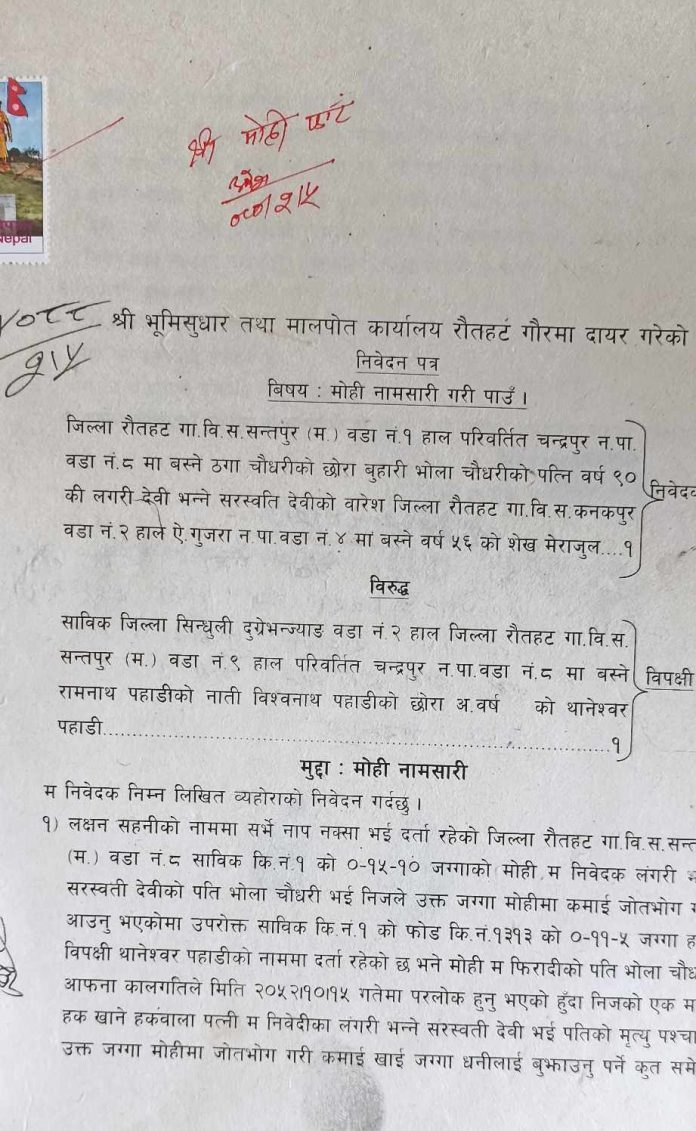 Nepal
श्री मोही फाँट
श्री भूमिसुधार तथा मालपोत कार्यालय रौतहट गौरमा दायर गरेको
निवेदन पत्र
बिषय : मोही नामसारी गरी पाउँ ।
जिल्ला रौतहट गा.वि.स.सन्तपुर (म.) वडा नं.१ हाल परिवर्तित चन्द्रपुर न.पा.
वडा नं.८ मा बस्ने ठगा चौधरीको छोरा बुहारी भोला चौधरीको पत्नि वर्ष ९०
की लगरी देवी भन्ने सरस्वति देवीको वारेश जिल्ला रौतहट गा.वि.स.कनकपुर
वडा नं.२ हाल ऐ.गुजरा न.पा.वडा नं.४ मा बस्ने वर्ष ५६ को शेख मेराजुल....१
निवेदक
विरुद्ध
साविक जिल्ला सिन्धुली दुग्रेभन्ज्याङ वडा नं.२ हाल जिल्ला रौतहट गा.वि.स.
सन्तपुर (म.) वडा नं.९ हाल परिवर्तित चन्द्रपुर न.पा.वडा नं.८ मा बस्ने
रामनाथ पहाडीको नाती विश्वनाथ पहाडीको छोरा अ.वर्ष को थानेश्वर
पहाडी...१
विपक्षी
मुद्दा : मोही नामसारी
म निवेदक निम्न लिखित व्यहोराको निवेदन गर्दछु ।
१) लक्षन सहनीको नाममा सर्भे नाप नक्सा भई दर्ता रहेको जिल्ला रौतहट गा.वि.स.सन्त
(म.) वडा नं.८ साविक कि.नं.१ को ०-१५-१० जग्गाको मोही म निवेदक लंगरी
सरस्वती देवीको पति भोला चौधरी भई निजले उक्त जग्गा मोहीमा कमाई जोतभोग
आउनु भएकोमा उपरोक्त साविक कि.नं.१ को फोड कि.नं.१३१३ को ०-११-५ जग्गा ह
विपक्षी थानेश्वर पहाडीको नाममा दर्ता रहेको छ भने मोही म फिरादीको पति भोला चौध
आफना कालगतिले मिति २०५२।१०।१५ गतेमा परलोक हुनु भएको हुँदा निजको एक म
हक खाने हकवाला पत्नी म निवेदीका लंगरी भन्ने सरस्वती देवी भई पतिको मृत्यु पश्चा
उक्त जग्गा मोहीमा जोतभोग गरी कमाई खाई जग्गा धनीलाई बुझाउनु पर्ने कुत समे